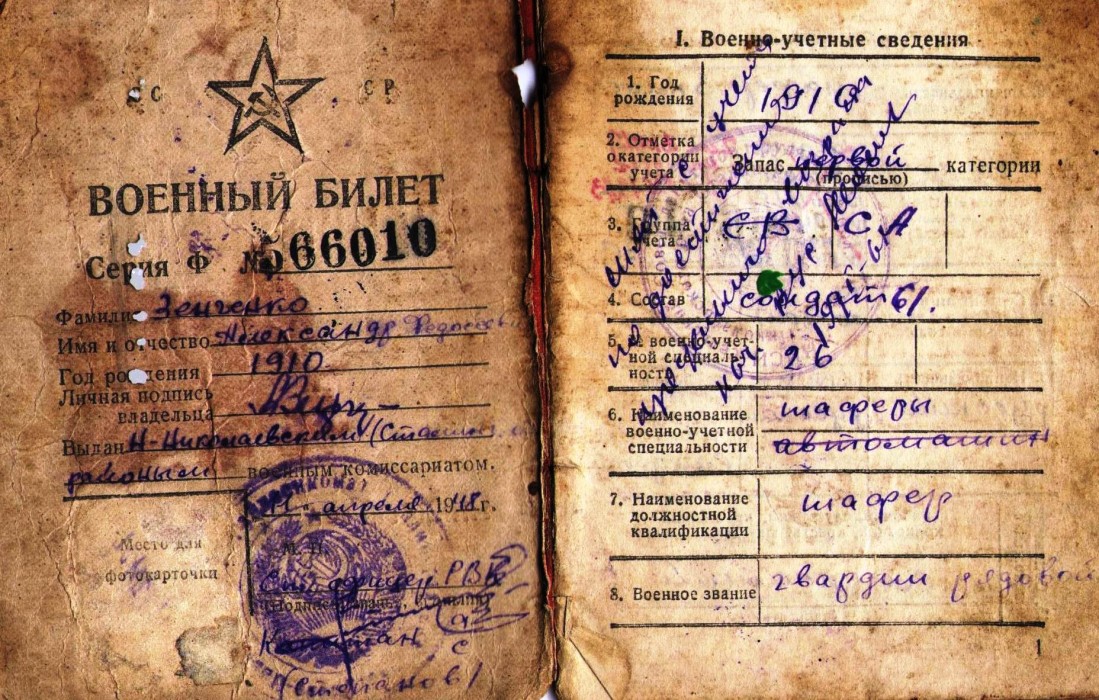 С СР
ВОЕННЫЙ БИЛЕТ
Серия Ф № 566010
Фамилия Зенченко
Имя и отчество Александр Федосеевич
Год рождения 1910
Личная подпись
владельца
Выдан Н-Николаевским (Сталинс
районым военным комиссариатом.
апреля 1948 г.
Место для
фотокарточки
М. П.
офицер РВК
Степанов
I. Военно-учетные сведения
1. Год
рождения 1910
2. Отметка
о категории
учета Запас первой категории
(прописью)
3. Группа
учета СВ СА
4. Состав солдаты
5. № военно-учет-
ной специаль-
ности 26
6. Наименование
военно-учетной
специальности шаферы
автомашин
7. Наименование
должностной
квалификации шафер
8. Военное звание гвардии рядовой
снят с учета
по достижении
предельного возраста
1